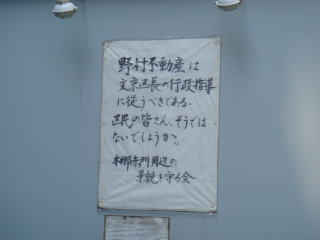 野村不動産は
文京区長の行政指導
に従うべきである。
区民の皆さん、そうでは
ないでしょうか。
本郷赤門周辺の
景観を守る会